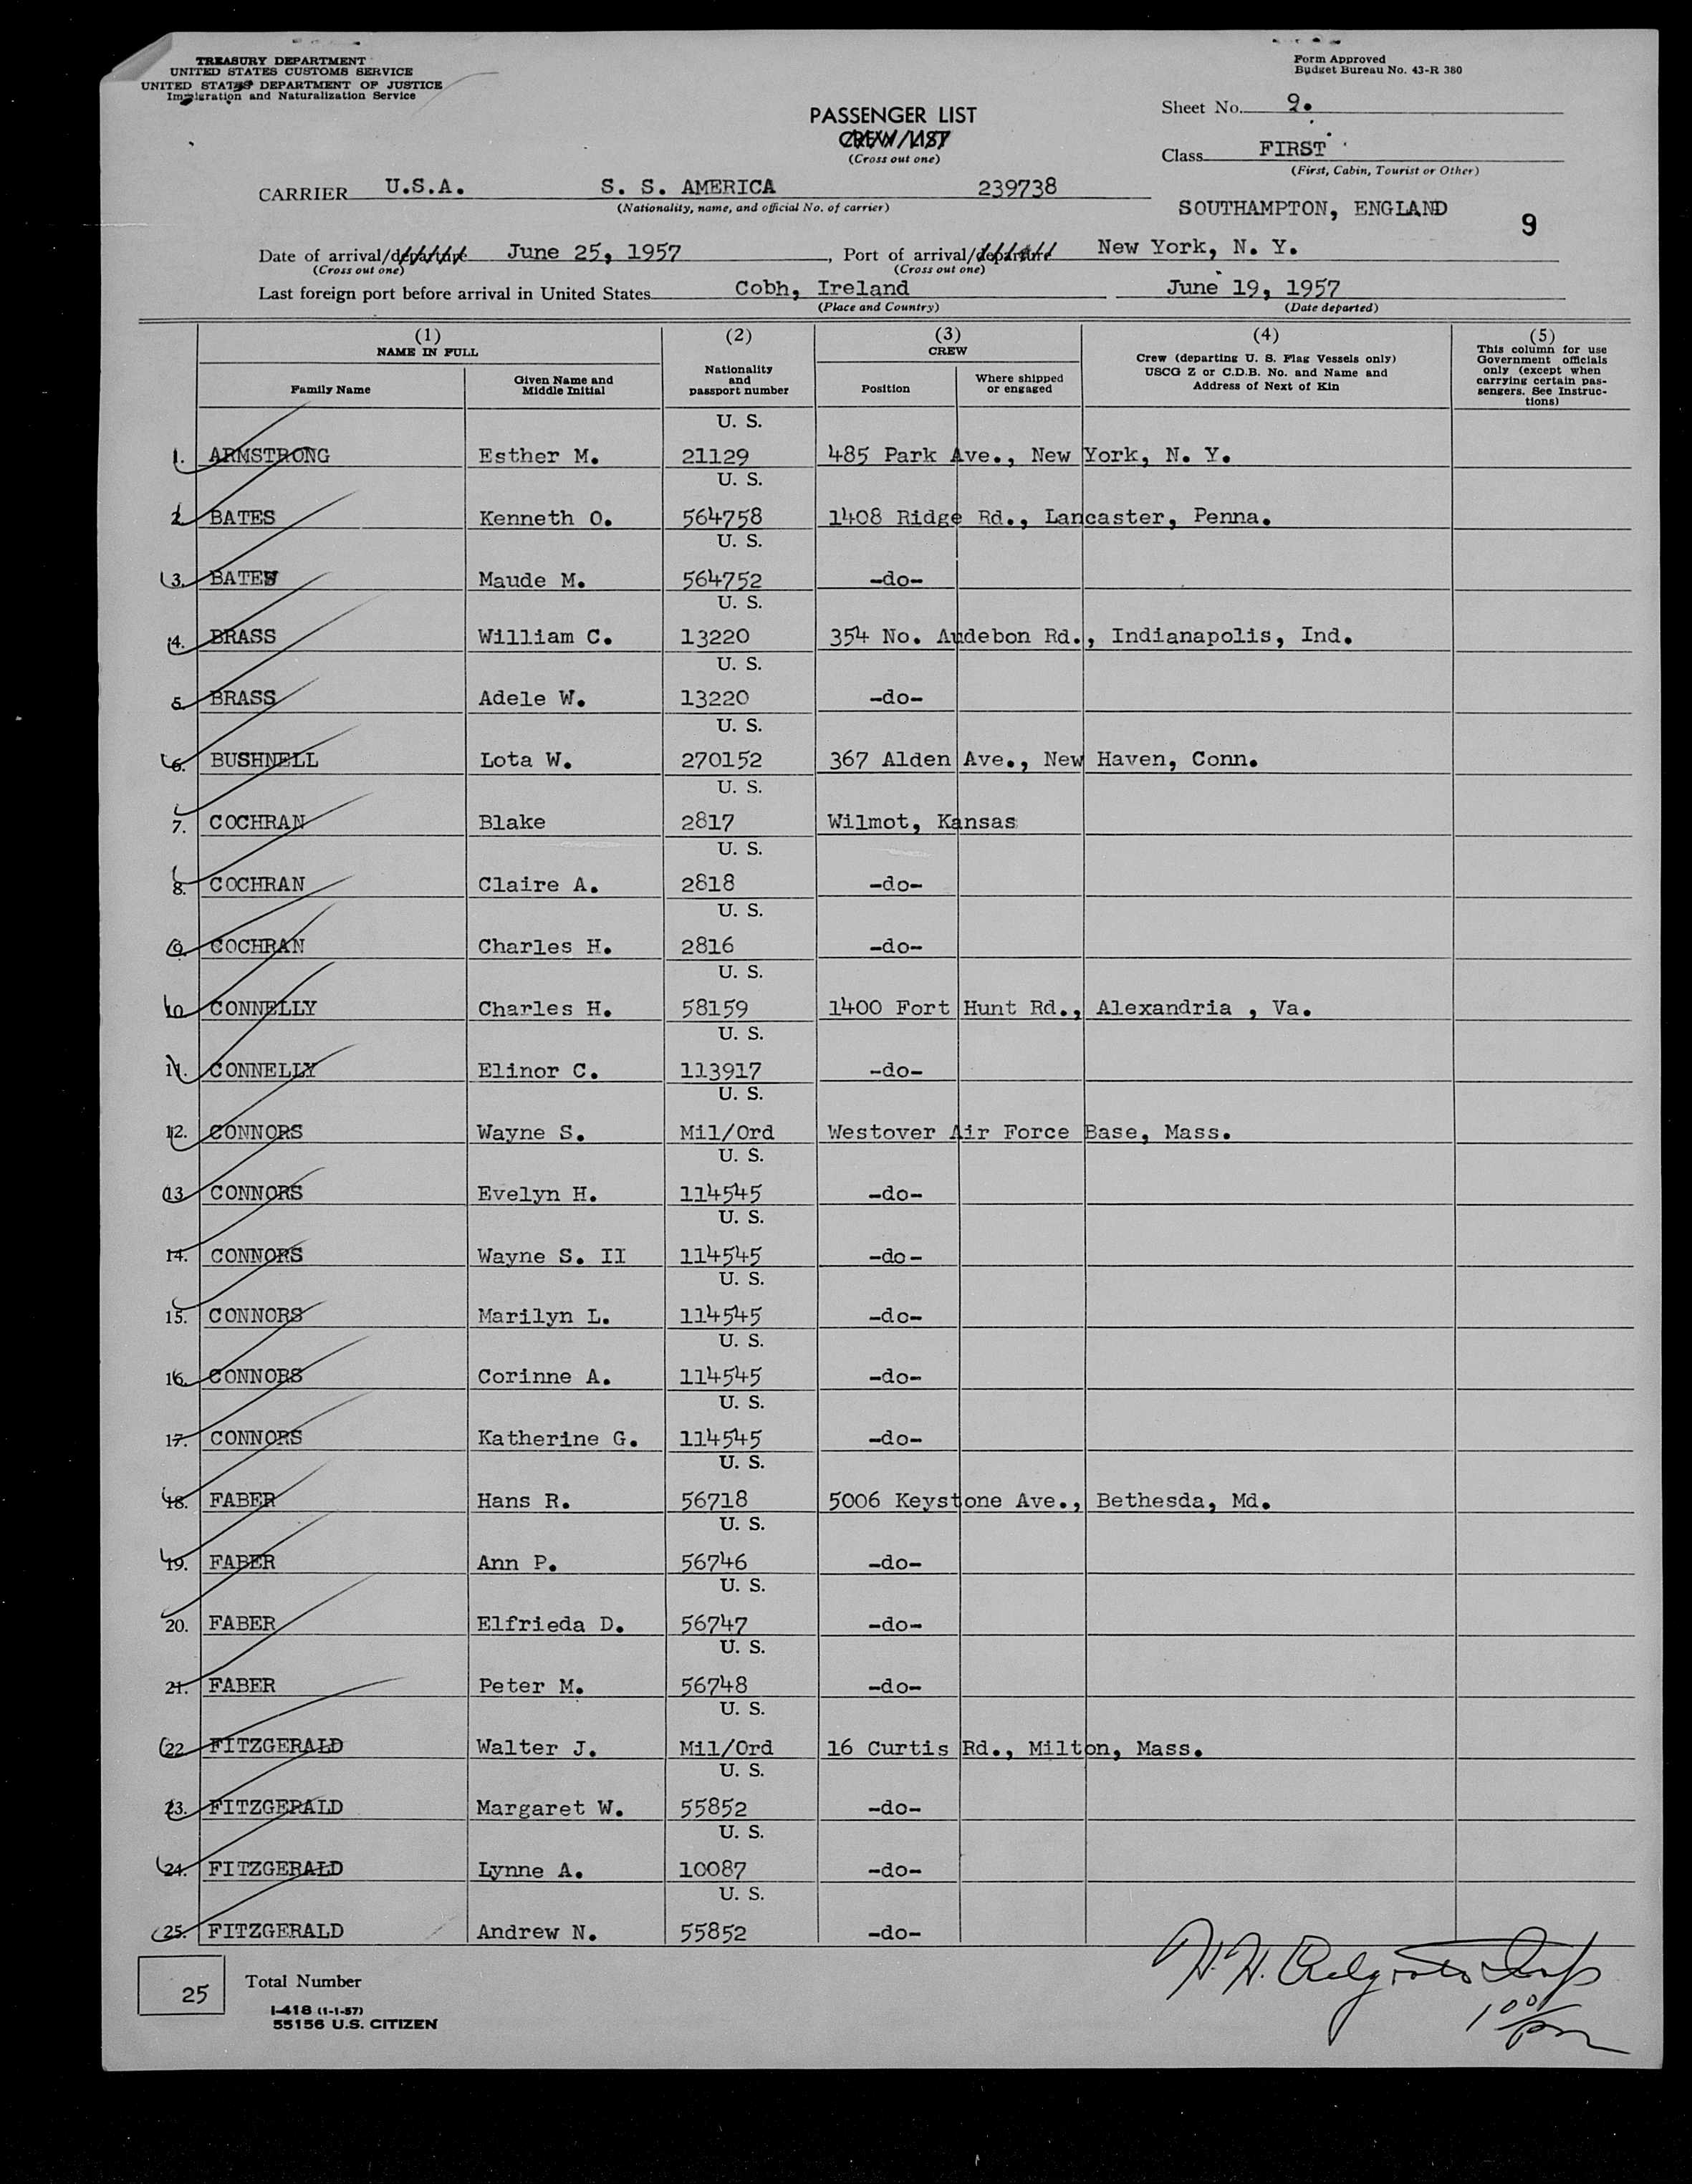 TREASURY DEPARTMENT
UNITED STATES CUSTOMS SERVICE
UNITED STATES DEPARTMENT OF JUSTICE
Immigration and Naturalization Service
Form Approved
Budget Bureau No. 43-R 380
Sheet No. 9.
PASSENGER LIST
CREW LIST
(Cross out one)
Class FIRST
(First, Cabin, Tourist or Other)
CARRIER U.S.A. S. S. AMERICA 239738
(Nationality, name, and official No. of carrier)
SOUTHAMPTON, ENGLAND
9
Date of arrival/departure June 25, 1957, Port of arrival/departure New York, N. Y.
(Cross out one) (Cross out one)
Last foreign port before arrival in United States Cobh, Ireland June 19, 1957
(Place and Country) (Date departed)
(1) (2) (3) (4) (5)
NAME IN FULL
Family Name
Given Name and Middle Initial
Nationality and passport number
CREW
Position
Where shipped or engaged
Crew (departing U. S. Flag Vessels only)
USCG Z or C.D.B. No. and Name and
Address of Next of Kin
This column for use
Government officials
only (except when
carrying certain pas-
sengers. See Instruc-
tions)
U. S.
1. ARMSTRONG Esther M. 21129 485 Park Ave., New York, N. Y.
U. S.
2. BATES Kenneth O. 564758 1408 Ridge Rd., Lancaster, Penna.
U. S.
3. BATES Maude M. 564752 -do-
U. S.
4. BRASS William C. 13220 354 No. Audebon Rd., Indianapolis, Ind.
U. S.
5. BRASS Adele W. 13220 -do-
U. S.
6. BUSHNELL Lota W. 270152 367 Alden Ave., New Haven, Conn.
U. S.
7. COCHRAN Blake 2817 Wilmot, Kansas
U. S.
8. COCHRAN Claire A. 2818 -do-
U. S.
9. COCHRAN Charles H. 2816 -do-
U. S.
10 CONNELLY Charles H. 58159 1400 Fort Hunt Rd., Alexandria , Va.
U. S.
11. CONNELLY Elinor C. 113917 -do-
U. S.
12. CONNORS Wayne S. Mil/Ord Westover Air Force Base, Mass.
U. S.
13 CONNORS Evelyn H. 114545 -do-
U. S.
14. CONNORS Wayne S. II 114545 -do-
U. S.
15. CONNORS Marilyn L. 114545 -do-
U. S.
16. CONNORS Corinne A. 114545 -do-
U. S.
17. CONNORS Katherine G. 114545 -do-
U. S.
18. FABER Hans R. 56718 5006 Keystone Ave., Bethesda, Md.
U. S.
19. FABER Ann P. 56746 -do-
U. S.
20. FABER Elfrieda D. 56747 -do-
U. S.
21. FABER Peter M. 56748 -do-
U. S.
22 FITZGERALD Walter J. Mil/Ord 16 Curtis Rd., Milton, Mass.
U. S.
23. FITZGERALD Margaret W. 55852 -do-
U. S.
24. FITZGERALD Lynne A. 10087 -do-
U. S.
25. FITZGERALD Andrew N. 55852 -do-
25 Total Number
I-418 (1-1-57)
55156 U.S. CITIZEN
1 00/pm